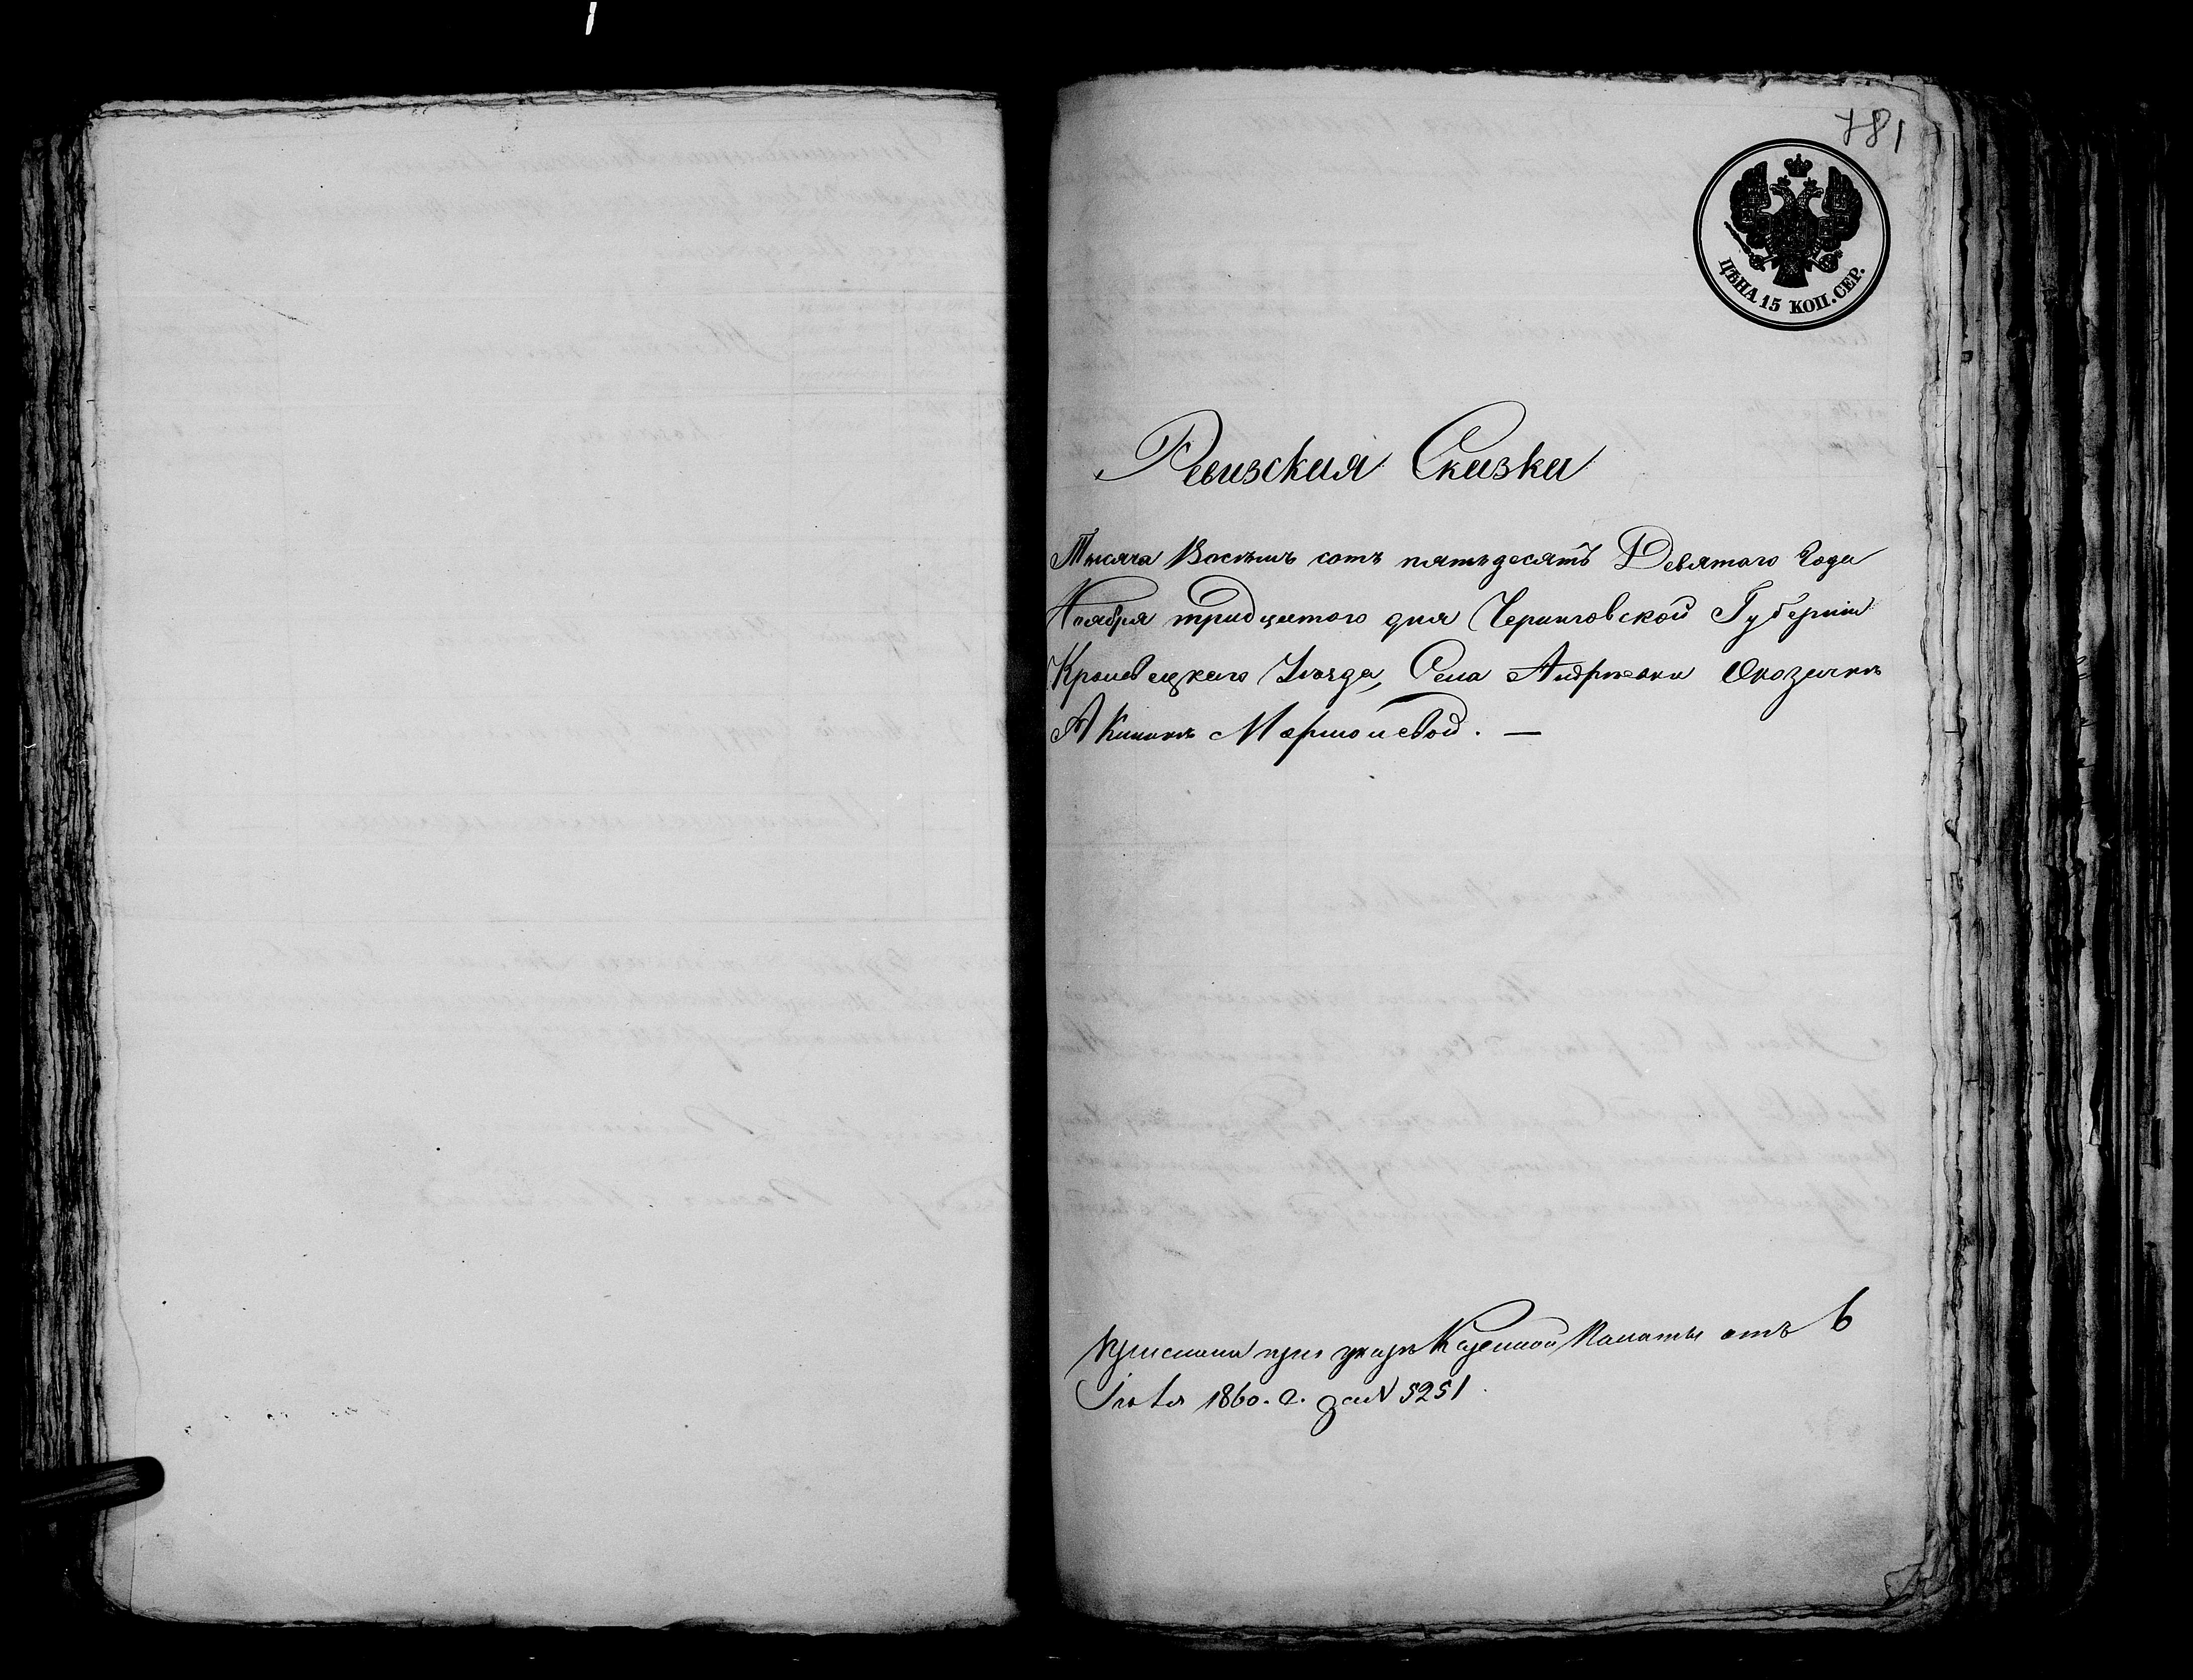 781
ЦѢНА 15 КОП. СЕР.
Ревизская Сказка
Тысяча Восемь сотъ пятьдесятъ Девятого Года
Ноября тридцатого дня Черниговской Губерніи
Кролевецкаго Уѣзда, Села Андреевки Оказачкѣ
Акилинѣ
прислана при указѣ Казенной Палаты отъ 6
Іюля 1860. г. за № 5251